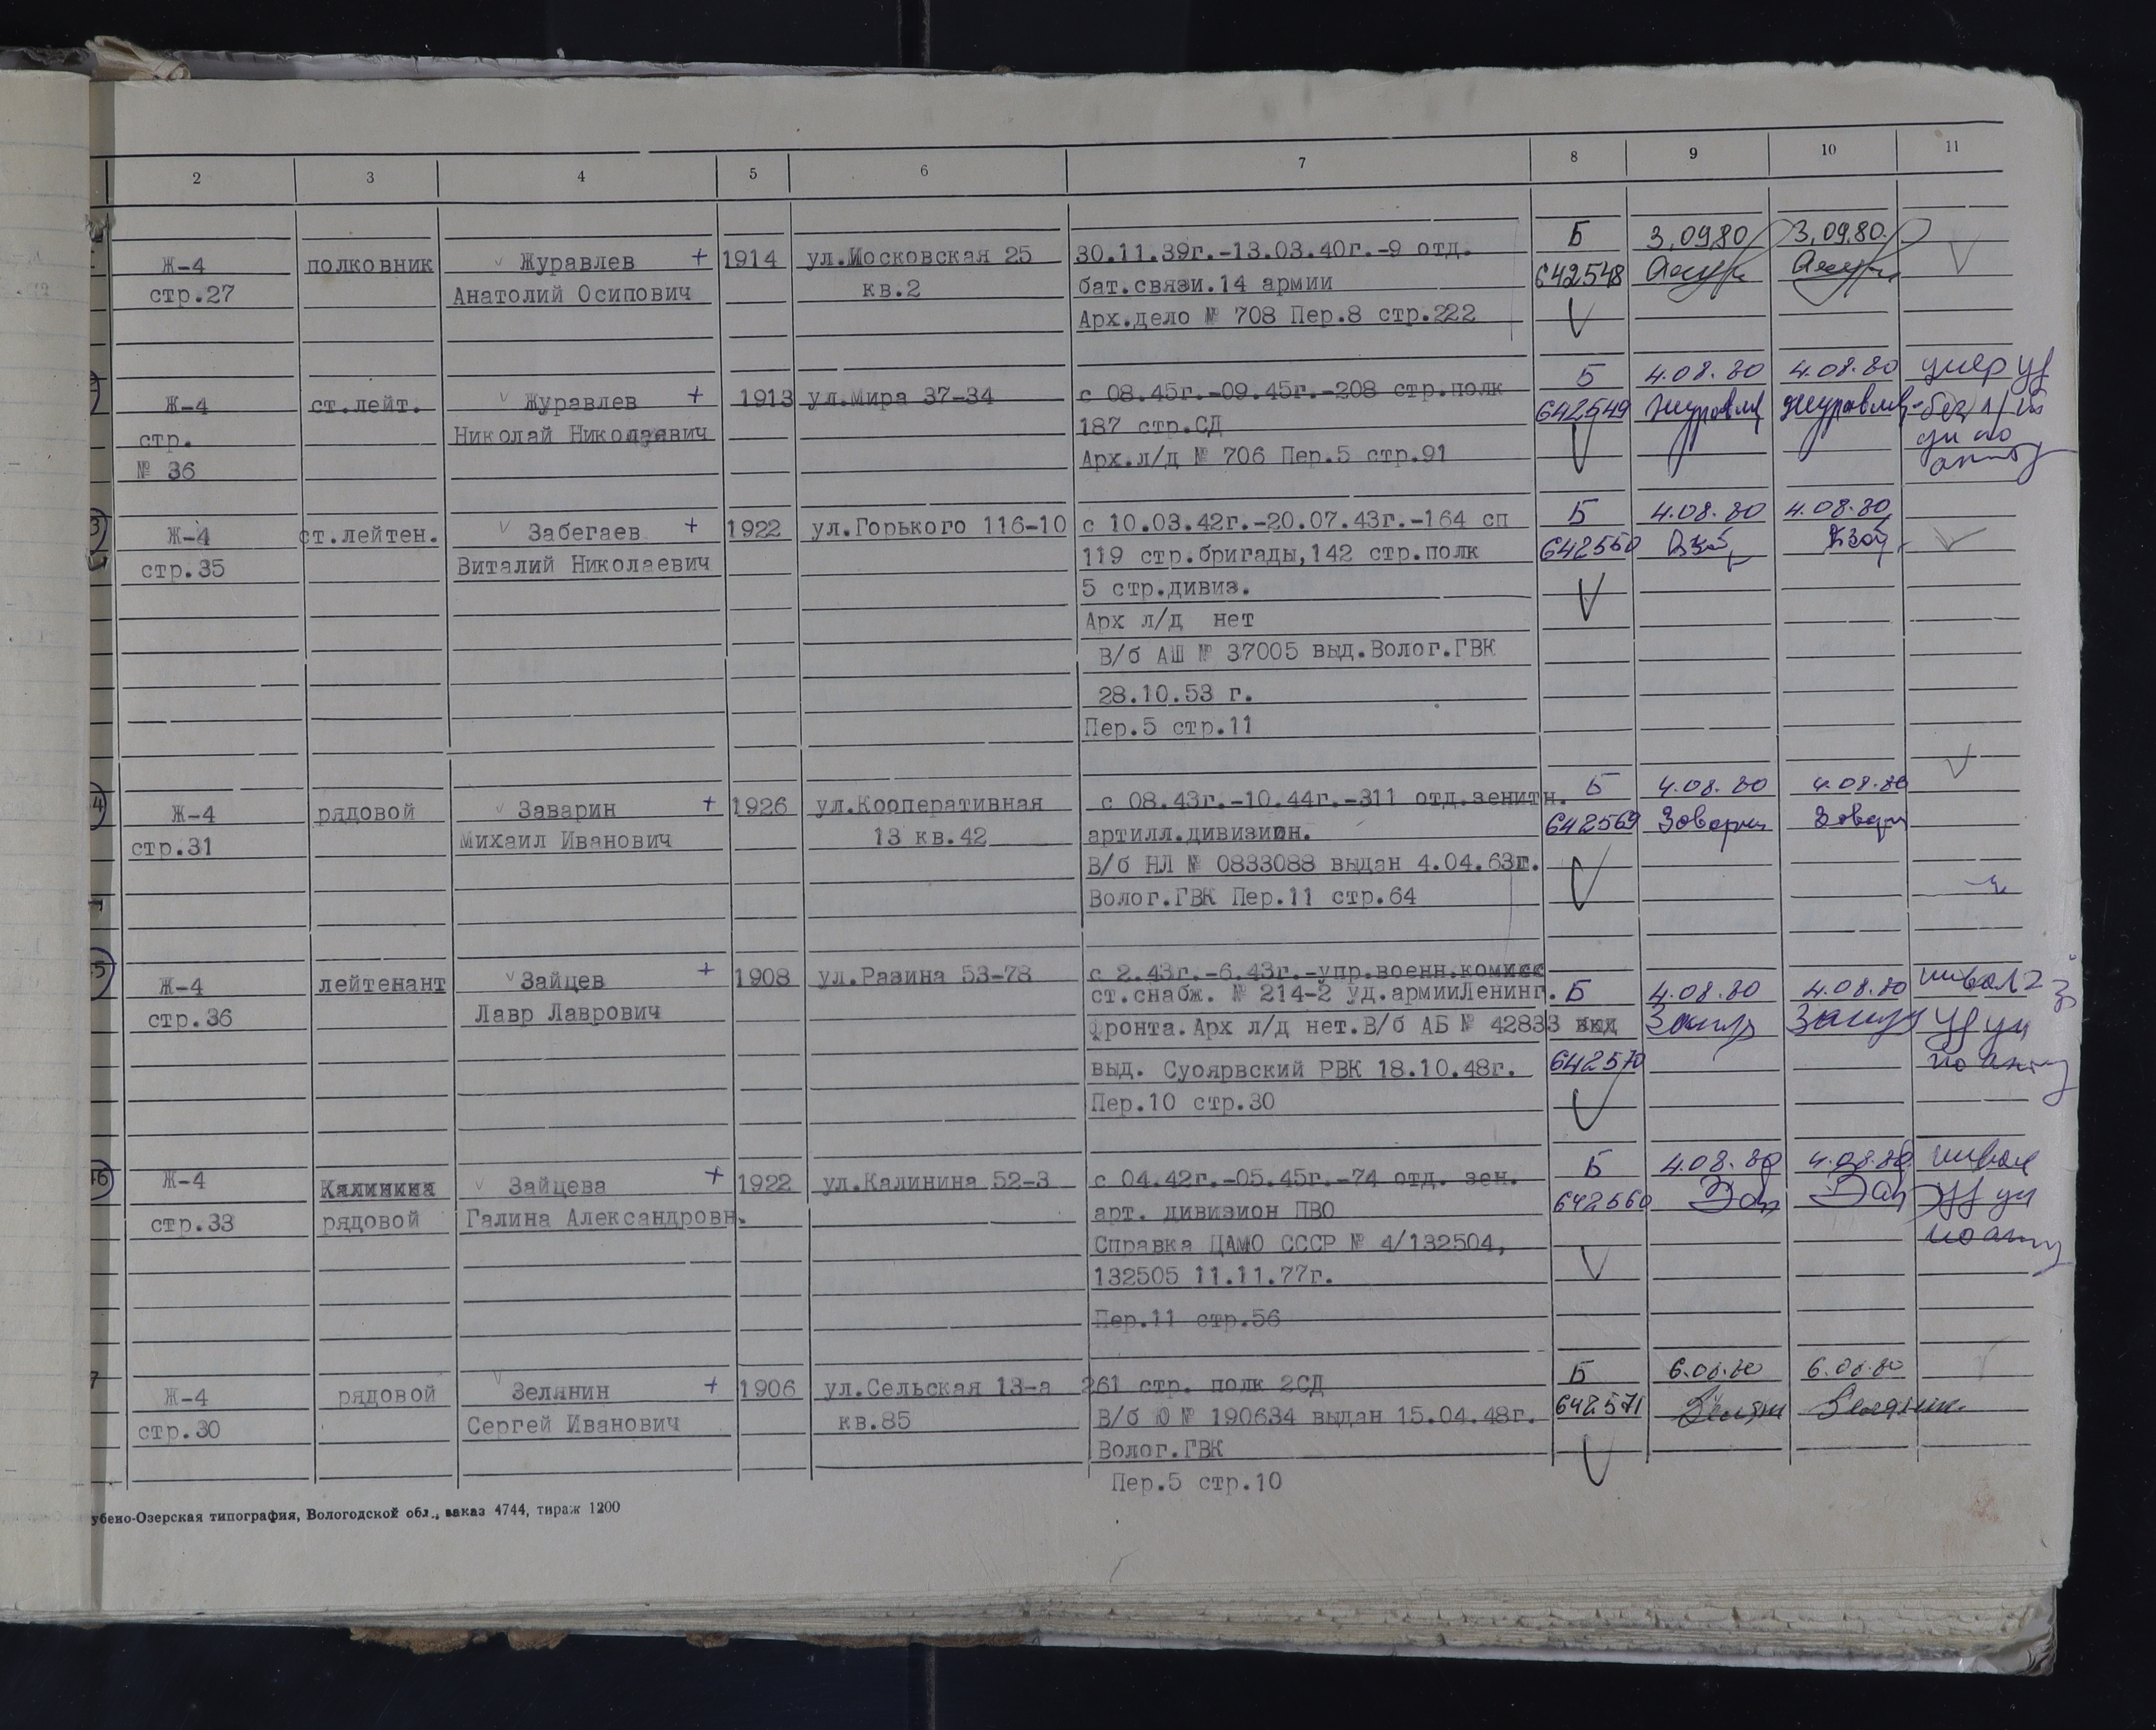 2 3 4 5 6 7 8 9 10 11
Б 3.09.80 3.09.80.
Ж-4 полковник Журавлев + 1914 ул.Московская 25 30.11.39г.-13.03.40г.-9 отд.
стр.27 Анатолий Осипович кв.2 бат.связи.14 армии 642548
Арх.дело № 708 Пер.8 стр.222
Б 4.08.80 4.08.80 умер
Ж-4 ст.лейт. Журавлев + 1913 ул.Мира 37-34 с 08.45г.-09.45г.-208 стр.полк 642549
стр. Николай Николаевич 187 стр.СД
№ 36 Арх.л/д № 706 Пер.5 стр.91
Б 4.08.80 4.08.80
Ж-4 ст.лейтен. Забегаев + 1922 ул.Горького 116-10 с 10.03.42г.-20.07.43г.-164 сп
стр.35 Виталий Николаевич 119 стр.бригады,142 стр.полк 642550
5 стр.дивиз.
Арх л/д нет
В/б АШ № 37005 выд.Волог.ГВК
28.10.53 г.
Пер.5 стр.11
Б 4.08.80 4.08.80
Ж-4 рядовой Заварин + 1926 ул.Кооперативная с 08.43г.-10.44г.-311 отд.зенитн.
стр.31 Михаил Иванович 13 кв.42 артилл.дивизион. 642569
В/б НЛ № 0833088 выдан 4.04.63г.
Волог.ГВК Пер.11 стр.64
Ж-4 лейтенант Зайцев + 1908 ул.Разина 53-78 с 2.43г.-6.43г.-упр.военн.комисс
ст.снабж. № 214-2 уд.армииЛенинг. Б 4.08.80 4.08.80
стр.36 Лавр Лаврович фронта.Арх л/д нет.В/б АБ № 42833
выд. Суоярвский РВК 18.10.48г. 642570
Пер.10 стр.30
Б 4.08.80 4.08.80
Ж-4 Калинина Зайцева + 1922 ул.Калинина 52-3 с 04.42г.-05.45г.-74 отд. зен.
стр.33 рядовой Галина Александровн. арт. дивизион ПВО 642560
Справка ЦАМО СССР № 4/132504,
132505 11.11.77г.
Пер.11 стр.56
Б 6.08.80 6.08.80
Ж-4 рядовой Зелянин + 1906 ул.Сельская 13-а 261 стр. полк 2СД
стр.30 Сергей Иванович кв.85 В/б Ю № 190634 выдан 15.04.48г. 642571
Волог.ГВК
Пер.5 стр.10
убено-Озерская типография, Вологодской обл., заказ 4744, тираж 1200